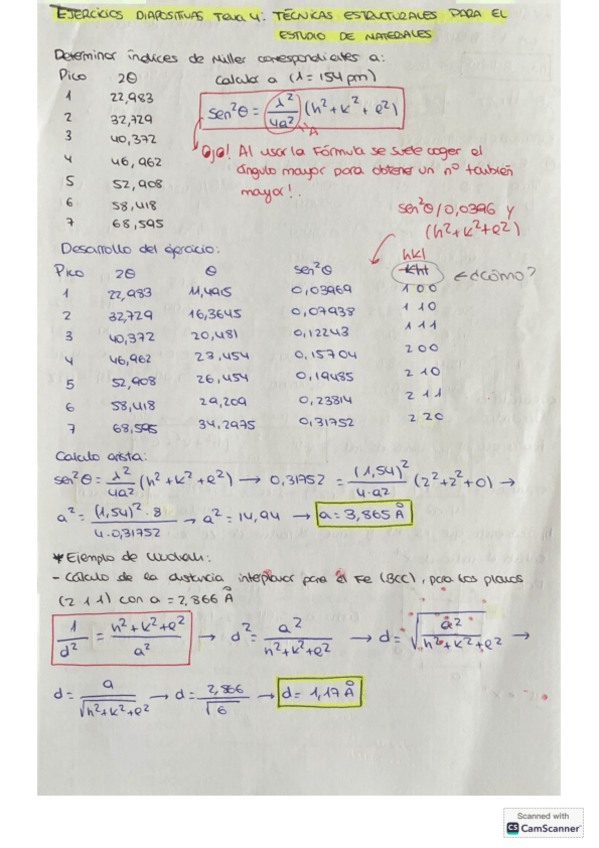 EJERCICIOS DIAPOSITIVAS TEMA 4: TÉCNICAS ESTRUCTURALES PARA EL
ESTUDIO DE MATERIALES
Determinar índices de Miller correspondientes a:
Pico 2θ calcular a (λ=154pm)
1 22,983
2 32,729
3 40,372
4 46,962
5 52,908
6 58,418
7 68,595
sen²θ = λ²/4a² (h²+k²+l²)
A
Ojo! Al usar la fórmula se suele coger el
ángulo mayor para obtener un nº también
mayor!
sen²θ/0,0396 y
(h²+k²+l²)
Desarrollo del ejercicio:
hkl
Pico 2θ θ sen²θ khl ¿cómo?
1 22,983 11,4915 0,03969 100
2 32,729 16,3645 0,07938 110
3 40,372 20,481 0,12243 111
4 46,962 23,454 0,15704 200
5 52,908 26,454 0,19485 210
6 58,418 29,209 0,23814 211
7 68,595 34,2975 0,31752 220
Calculo arista:
sen²θ = λ²/4a² (h²+k²+l²) → 0,31752 = (1,54)²/4·a² (2²+2²+0) →
a² = (1,54)²·8/4·0,31752 → a² = 14,94 → a = 3,865 Å
* Ejemplo de Wuolah:
- Cálculo de la distancia interplanar para el Fe (BCC), para los planos
(2 1 1) con a = 2,866 Å
1/d² = h²+k²+l²/a² → d² = a²/h²+k²+l² → d = √a²/h²+k²+l² →
d = a/√h²+k²+l² → d = 2,866/√6 → d = 1,17 Å
Scanned with
CS CamScanner